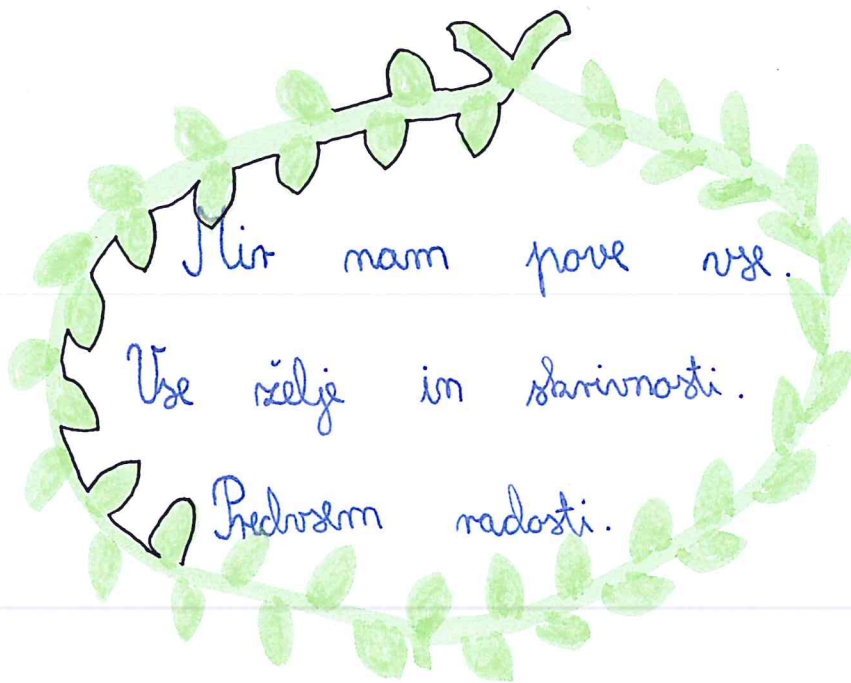 Mir nam pove vse.
Vse želje in skrivnosti.
Predvsem radosti.